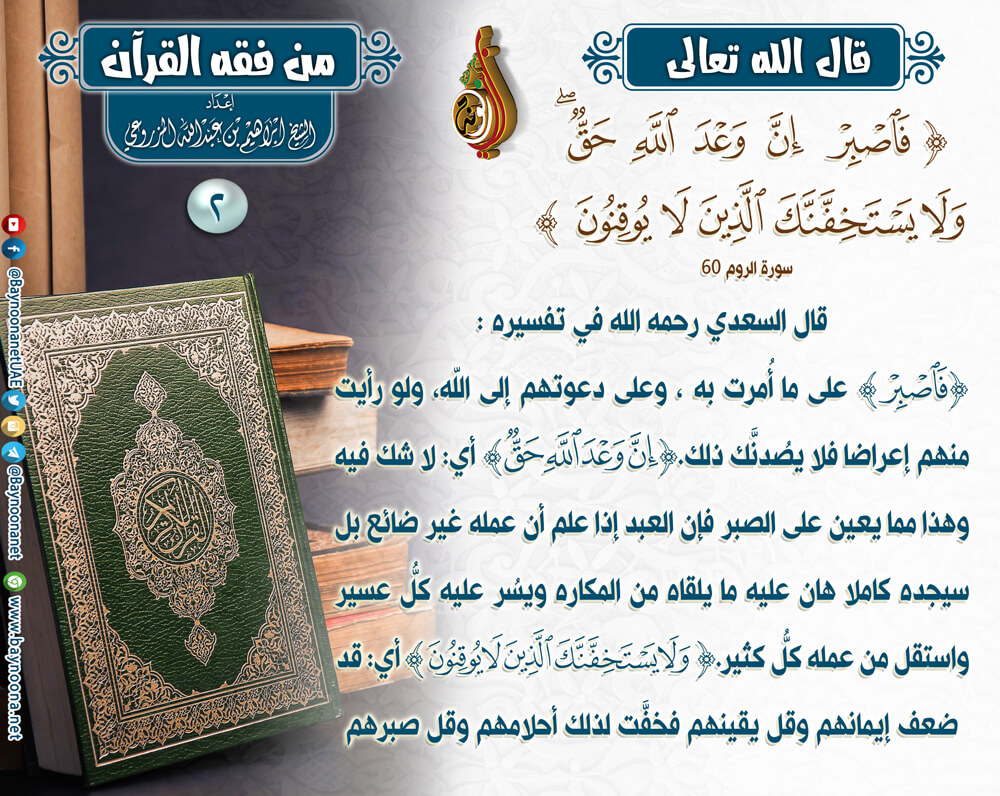 قال الله تعالى
﴿ فَٱصْبِرْ إِنَّ وَعْدَ ٱللَّهِ حَقٌّۖ
وَلَا يَسْتَخِفَّنَّكَ ٱلَّذِينَ لَا يُوقِنُونَ ﴾
سورة الروم 60
من فقه القرآن
إعداد
الشيخ ابراهيم بن عبدالله المزروعي
٢
قال السعدي رحمه الله في تفسيره :
﴿فَٱصْبِرْ﴾ على ما أُمرت به ، وعلى دعوتهم إلى الله، ولو رأيت
منهم إعراضا فلا يصُدنَّك ذلك.﴿إِنَّ وَعْدَ ٱللَّهِ حَقٌّ﴾ أي: لا شك فيه
وهذا مما يعين على الصبر فإن العبد إذا علم أن عمله غير ضائع بل
سيجده كاملا هان عليه ما يلقاه من المكاره ويسُر عليه كلُّ عسير
واستقل من عمله كلُّ كثير.﴿ وَلَا يَسْتَخِفَّنَّكَ ٱلَّذِينَ لَا يُوقِنُونَ﴾ أي: قد
ضعف إيمانهم وقل يقينهم فخفَّت لذلك أحلامهم وقل صبرهم
القرآن الكريم
@BaynoonanetUAE
@Baynoonanet
www.baynoona.net